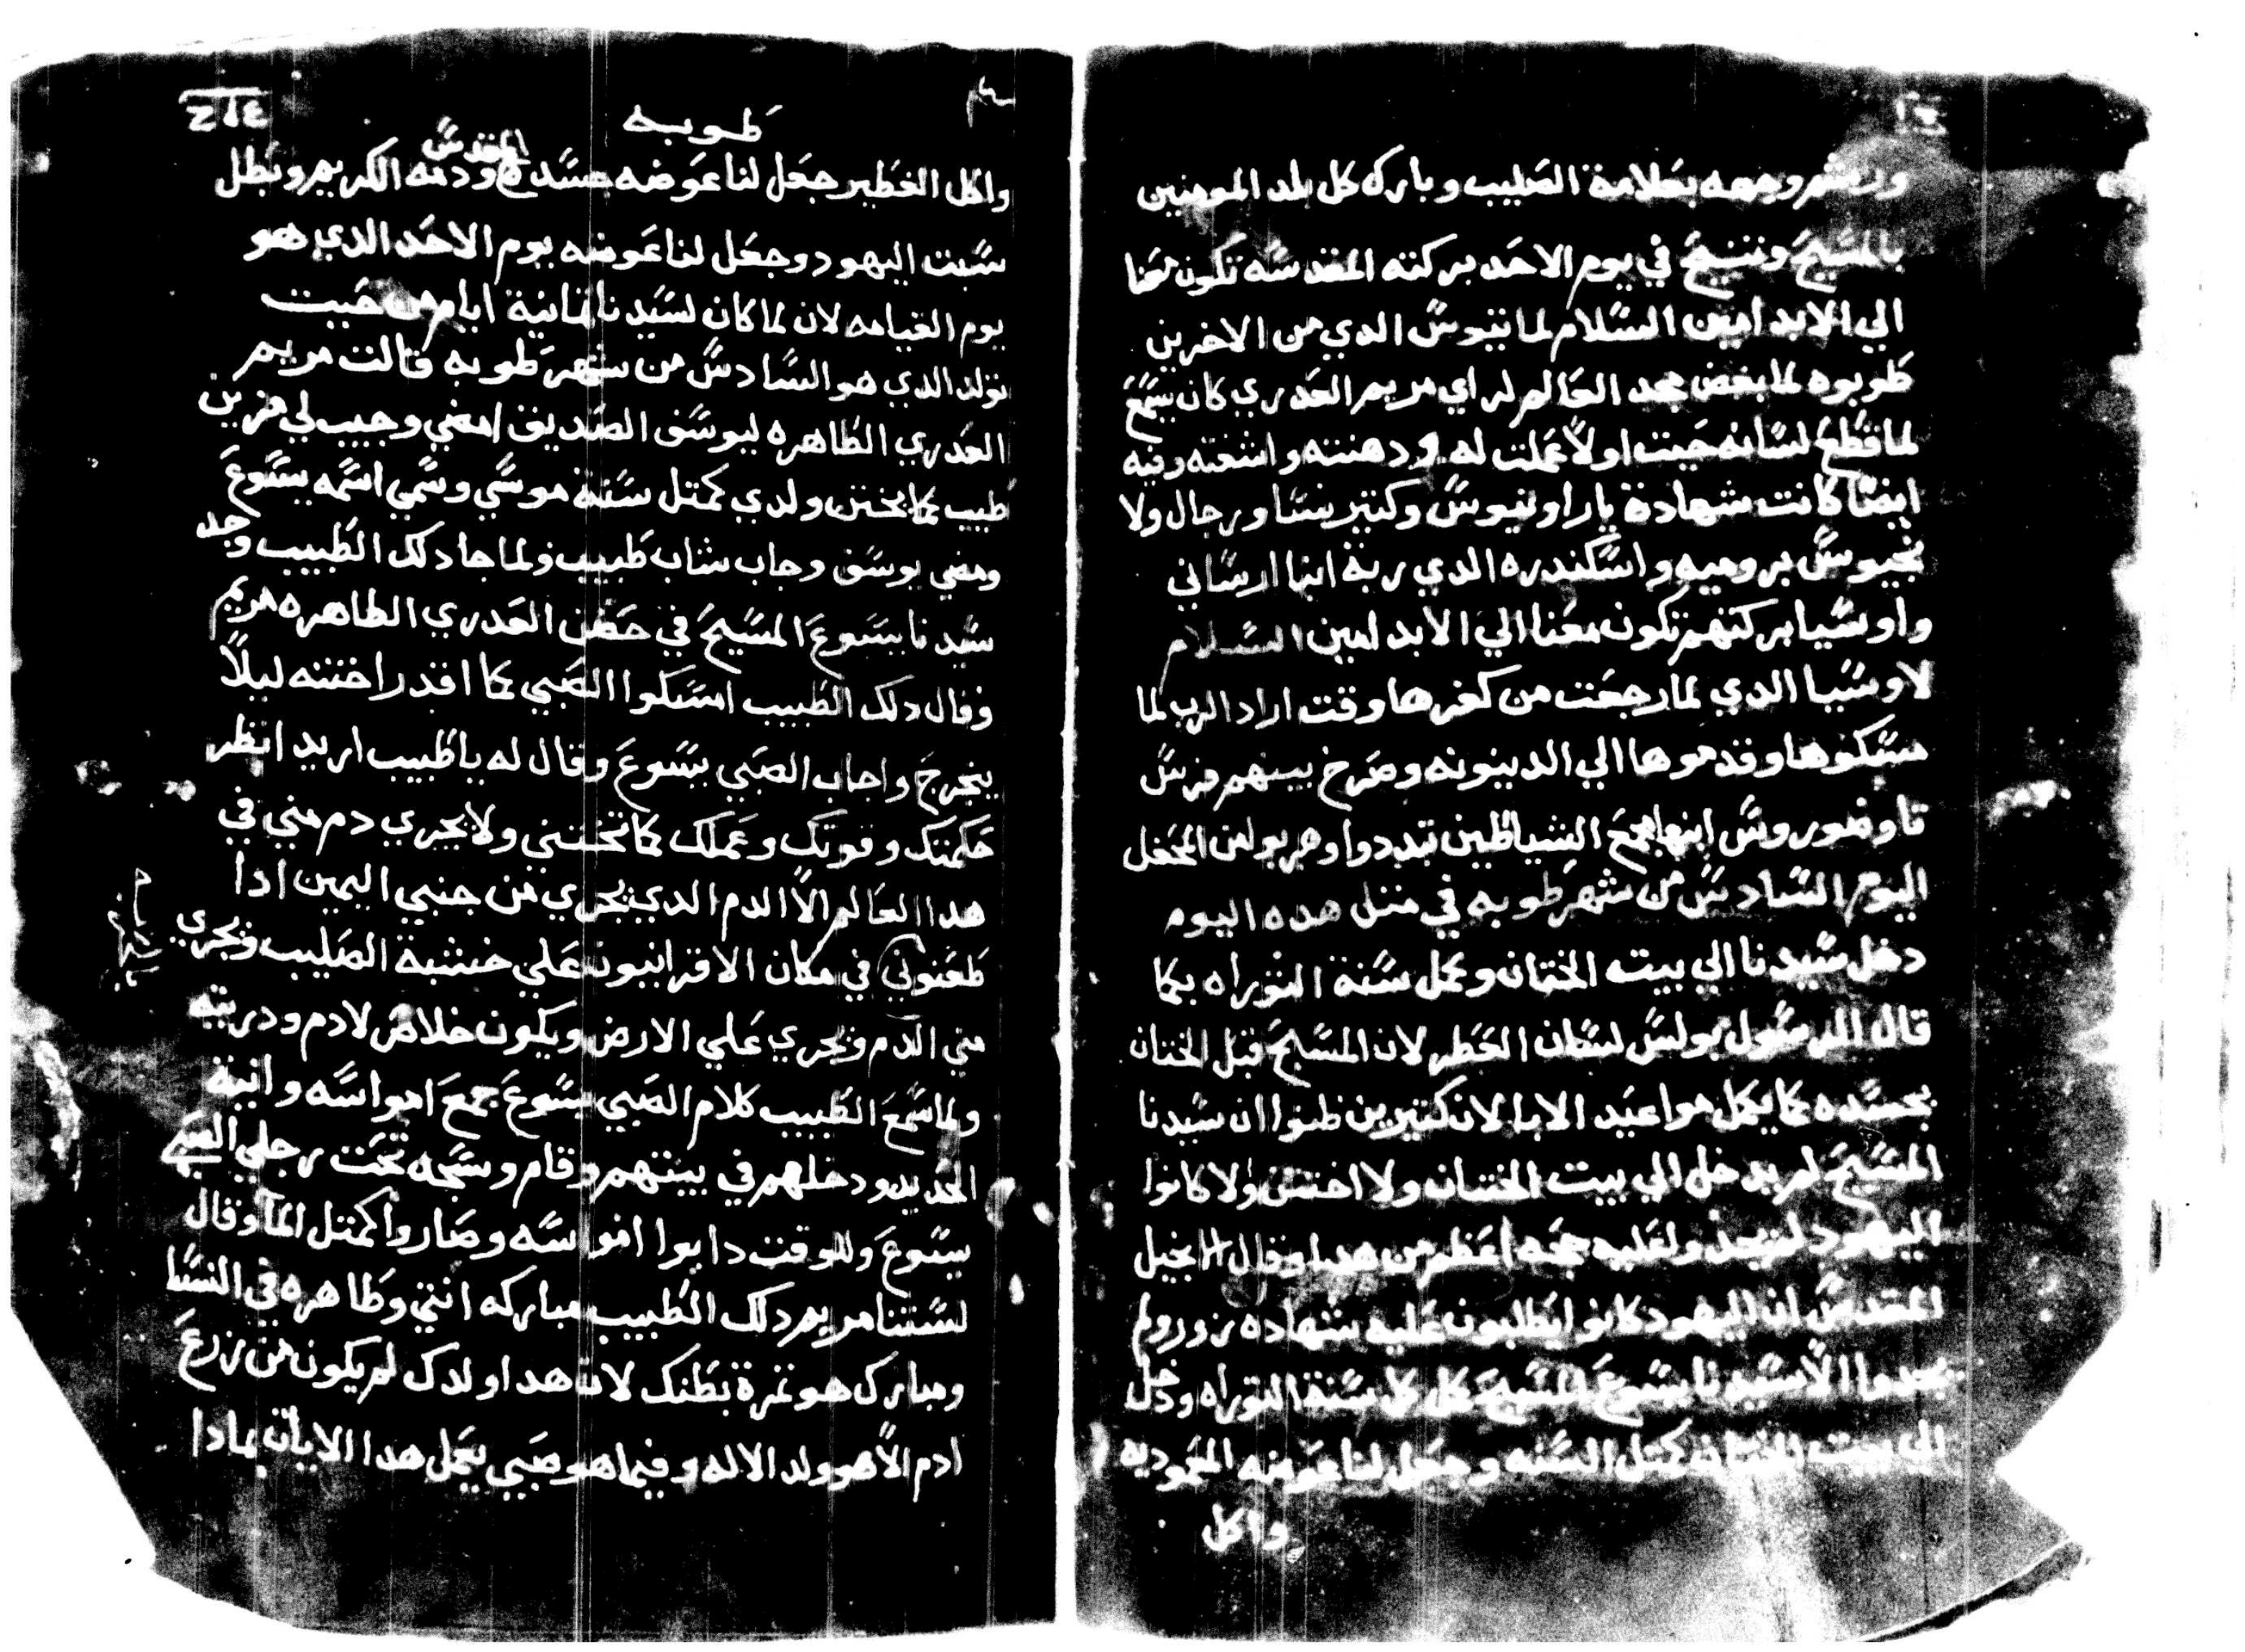 ورشم وجهه بعلامة الصليب وبارك كل بلد المومنين
بالمسيح وتنيح في يوم الاحد بركته المقدسه تكون معنا
الي الابد امين السلام لماتيوس الدي من الاخرين
طوبوه لما بغض مجد العالم لراي مريم العدري كان يسمع
لما قطع لسانه جيت اولا عملت له ودهنته واشفته وفيه
ايضا كانت شهادة ياراونيوس وكتير نسا ورجال ولا
بروميه واسكندره الدي ربة ابنها ارساني
واوسيا بركتهم تكون معنا الي الابد امين السلام
لاوسيا الدي لما رجعت من كفرها وقت اراد الرب لما
مسكوها وقدموها الي الدينونه وصرخ بينهم فرس
تاوضوروس ابنها جمع الشياطين تبددوا وهربوا من المحفل
اليوم السادس من شهر طوبه في متل هده اليوم
دخل سيدنا الي بيت الختان وعمل سنة التوراه بكما
قال الرسول بولس لسان العطر لان المسيح قبل الختان
بجسده كما يكمل مواعيد الابا لان كتيرين ظنوا ان سيدنا
المسيح لم يدخل الي بيت الختان ولا اختتن ولا كانوا
اليهود عليه حجه اعظم من هدا وقال الانجيل
المقدس ان اليهود كانوا يطلبون عليه شهاده زور ولم
يجدوا الا سيدنا يسوع المسيح كمل كل سنة التوراه ودخل
الي بيت الختان كمتل السنه وجعل لنا عوضه المعموديه
واكل
طوبه
واكل الفطير جعل لنا عوضه جسده المقدس ودمه الكريم وبطل
سبت اليهود وجعل لنا عوضه يوم الاحد الدي هو
يوم القيامه لان لما كان لسيدنا تمانية ايام من حيت
تولد الدي هو السادس من شهر طوبه قالت مريم
العدري الطاهره ليوسف الصديق امضي وجيب لي مزين
طبيب كما يختن ولدي كمتل سنة موسي وسمي اسمه يسوع
ومضي يوسف وجاب شاب طبيب ولما جا دلك الطبيب وجد
سيدنا يسوع المسيح في حضن العدري الطاهره مريم
وقال دلك الطبيب امسكوا الصبي كما اقدر اختنه ليلا
ينجرح واجاب الصبي يسوع وقال له ياطبيب اريد انظر
حكمتك وقوتك وعملك كما تختني ولا يجري دم مني في
هدا العالم الا الدم الدي يجري من جنبي اليمين ادا
طعنوني في مكان الاقرانيون علي خشبة الصليب ويجري
مني الدم ويجري علي الارض ويكون خلاص لادم ودريته
ولما سمع الطبيب كلام الصبي يسوع جمع امواسه وانية
الحديد ودخلهم في بيتهم وقام وسجد تحت رجلي الصبي
يسوع وللوقت دابوا امواسه وصاروا كمتل الما وقال
لستنا مريم دلك الطبيب مباركه انتي وطاهره في النسا
ومبارك هو تمرة بطنك لان هدا ولدك لم يكون من زرع
ادم الا هو ولد الاله وفيما هو صبي يعمل هدا الايات بمادا